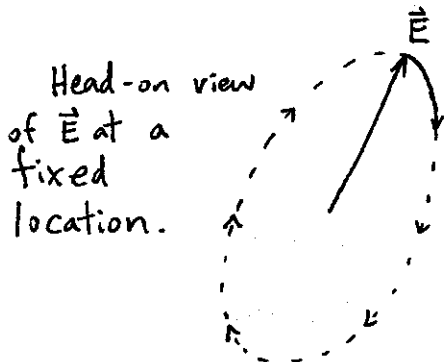 E⃗
Head-on view
of E⃗ at a
fixed
location.